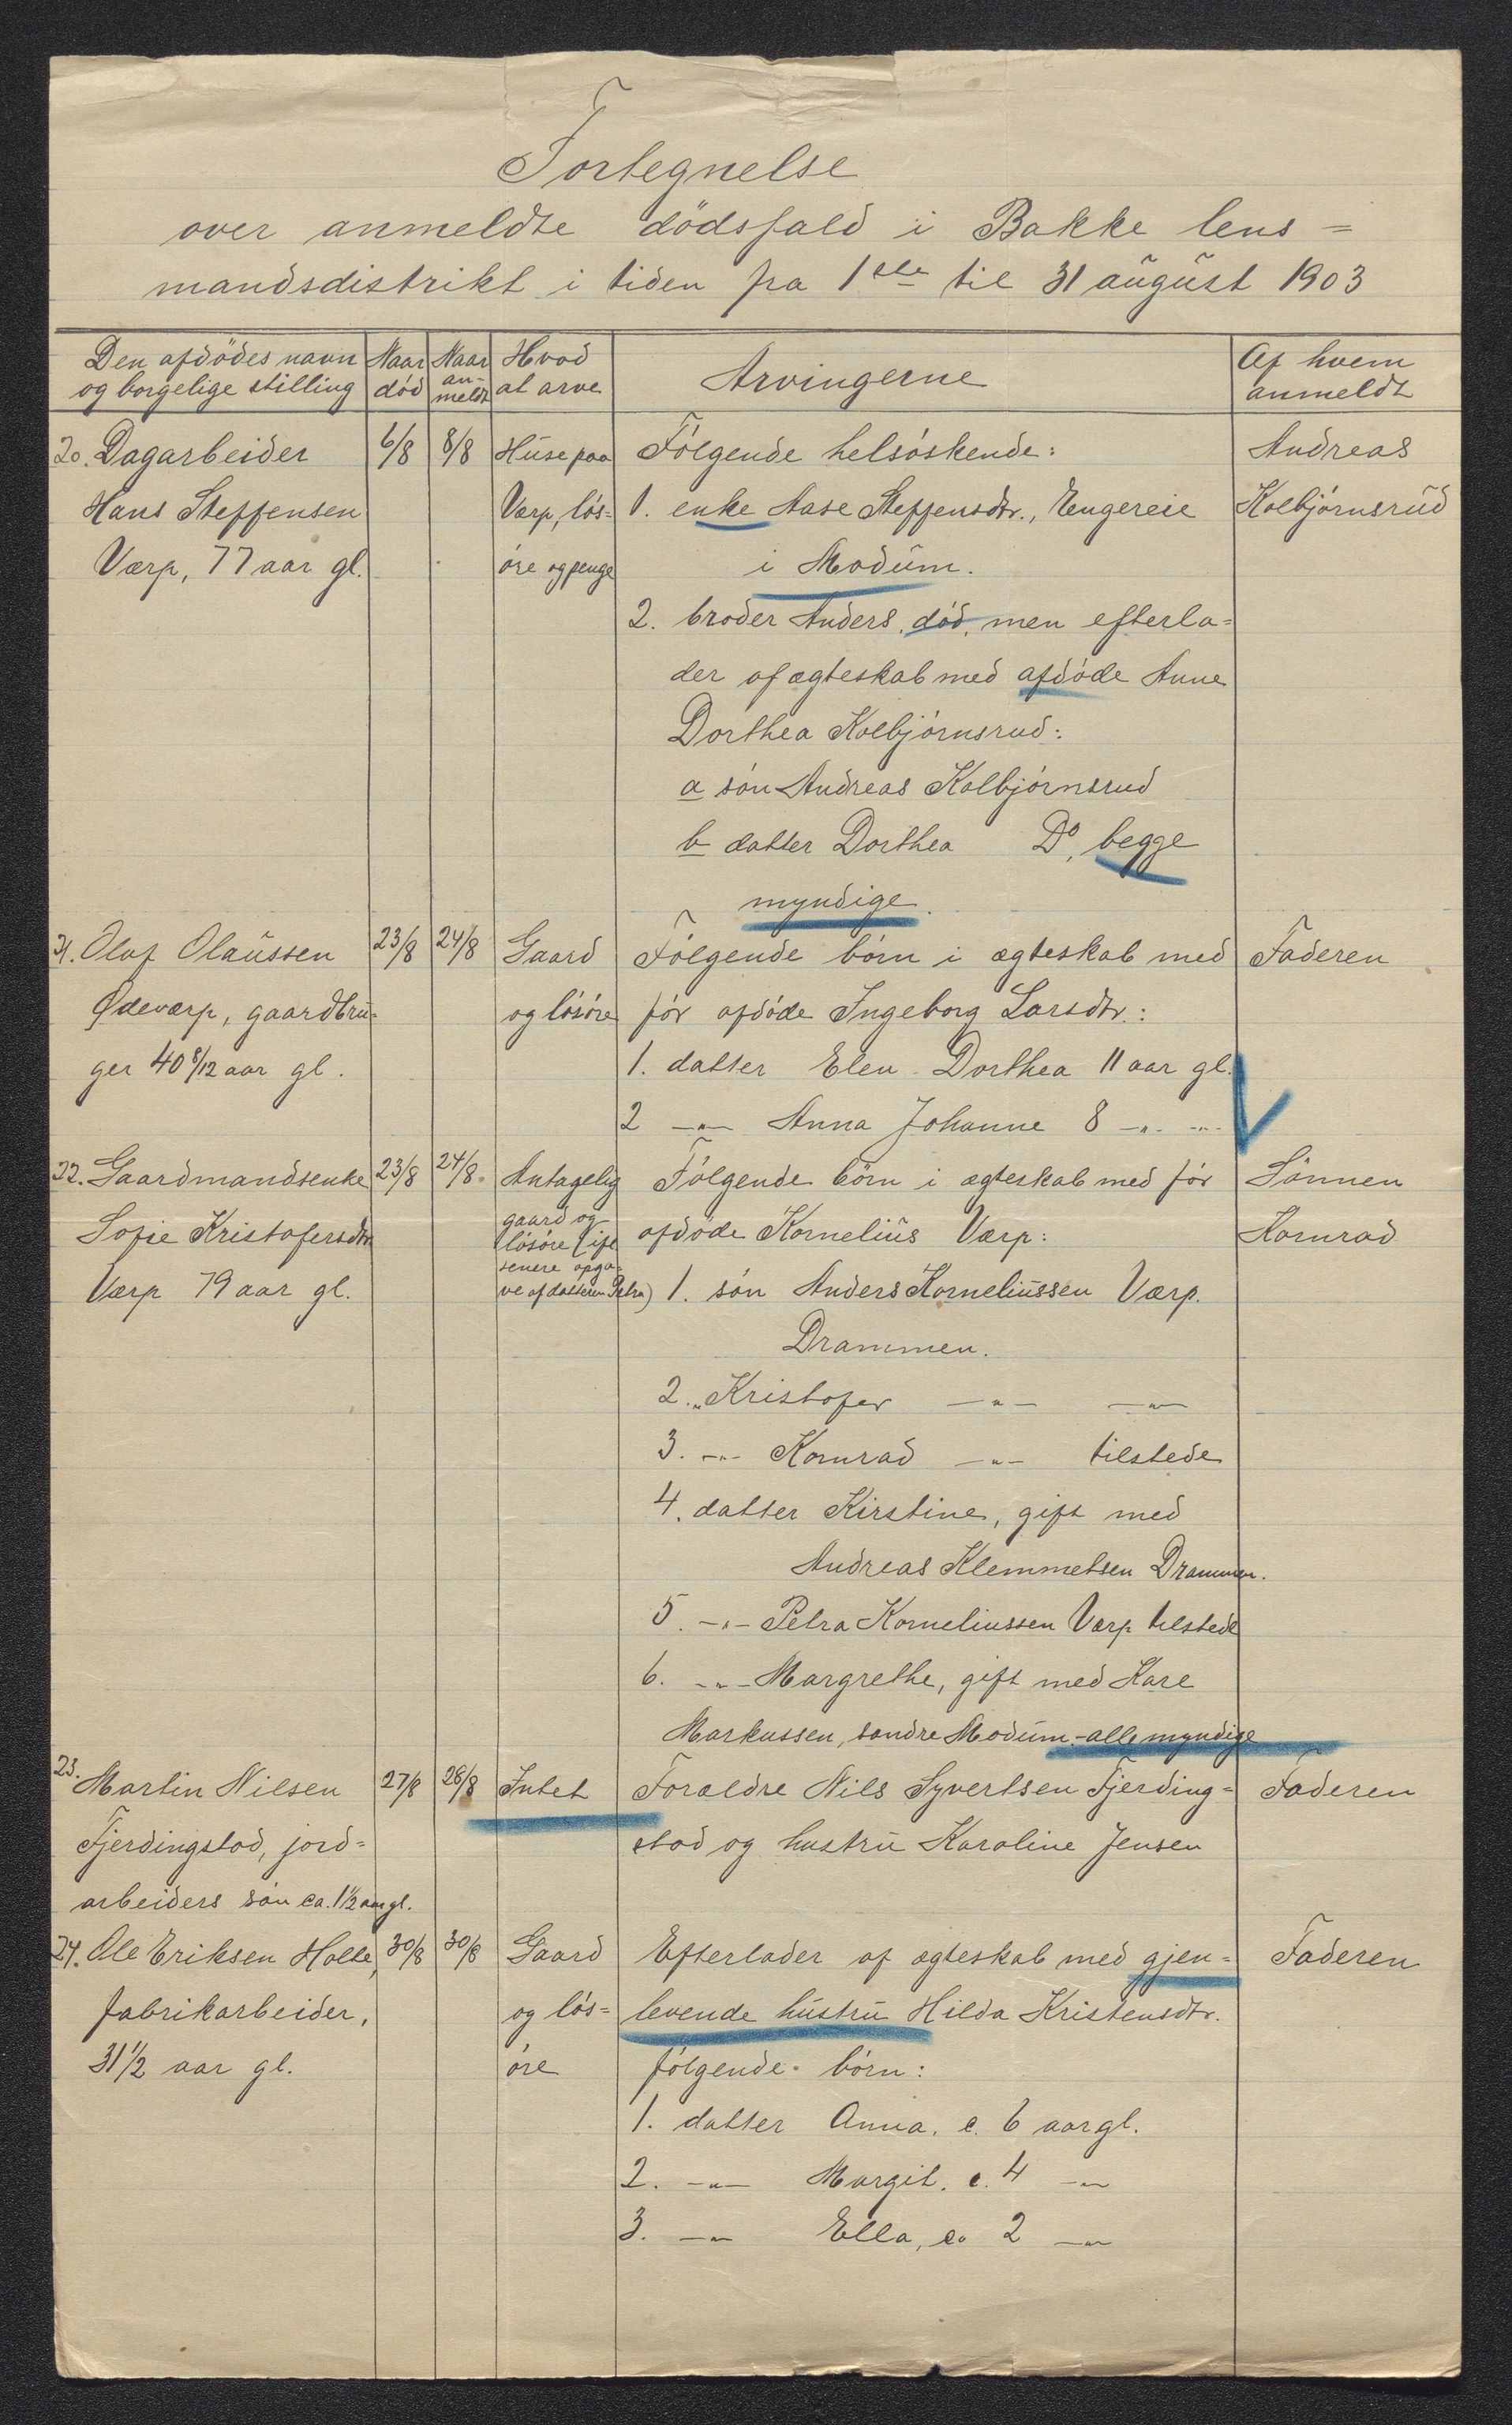 Fortegnelse
over anmeldte dödsfald i Bakke lens=
mandsdistrikt i tiden fra 1ste til 31 august 1903
Den afdödes navn og borgelige stilling
Naar död
Naar an-meldt
Hvad at arve
Arvingerne
Af hvem anmeldt
20. Dagarbeider 6/8 8/8 Huse paa Fölgende helsöskende: Andreas
Hans Steffensen Værp, lös= 1. enke Aase Steffensdtr., Engereie Kolbjörnsrud
Værp, 77 aar gl. öre og penge i Modum.
2. broder Anders, död, men efterla=
der af ægteskab med afdöde Anne
Dorthea Kolbjörnsrud:
a sön Andreas Kolbjörnsrud
b datter Dorthea Do, begge
myndige.
21. Olaf Olaussen 23/8 24/8 Gaard Fölgende börn i ægteskab med Faderen
Ødeværp, gaardbru= og lösöre för afdöde Ingeborg Larsdtr.:
ger 40 8/12 aar gl. 1. datter Elen Dorthea 11 aar gl.
2 -"- Anna Johanne 8 -"- -"-
22. Gaardmandsenke 23/8 24/8. Antagelig Fölgende börn i ægteskab med för Sönnen
Sofie Kristofersdtr. gaard og lösöre (ifl afdöde Kornelius Værp: Konrad
Værp 79 aar gl. senere opga-ve af datteren Petra) 1. sön Anders Korneliussen Værp.
Drammen.
2. " Kristofer -"- -"-
3. -"- Konrad -"- tilstede
4. datter Kirstine, gift med
Andreas Klemmetsen Drammen.
5. -"- Petra Korneliussen Værp tilstede
6. -"- Margrethe, gift med Kare
Markussen, söndre Modum. - alle myndige
23. Martin Nilsen 27/8 28/8 Intet Forældre Nils Syvertsen Fjerding= Faderen
Fjerdingstad, jord= stad og hustru Karoline Jensen
arbeiders sön ca. 1 1/2 aar gl.
24. Ole Eriksen Holte, 30/8 30/8 Gaard Efterlader af ægteskab med gjen= Faderen
fabrikarbeider, og lös= levende hustru Hilda Kristensdtr.
31 1/2 aar gl. öre fölgende börn:
1. datter Anna, c. 6 aar gl.
2. -"- Margit, c. 4 -"-
3. -"- Ella, c. 2 -"-